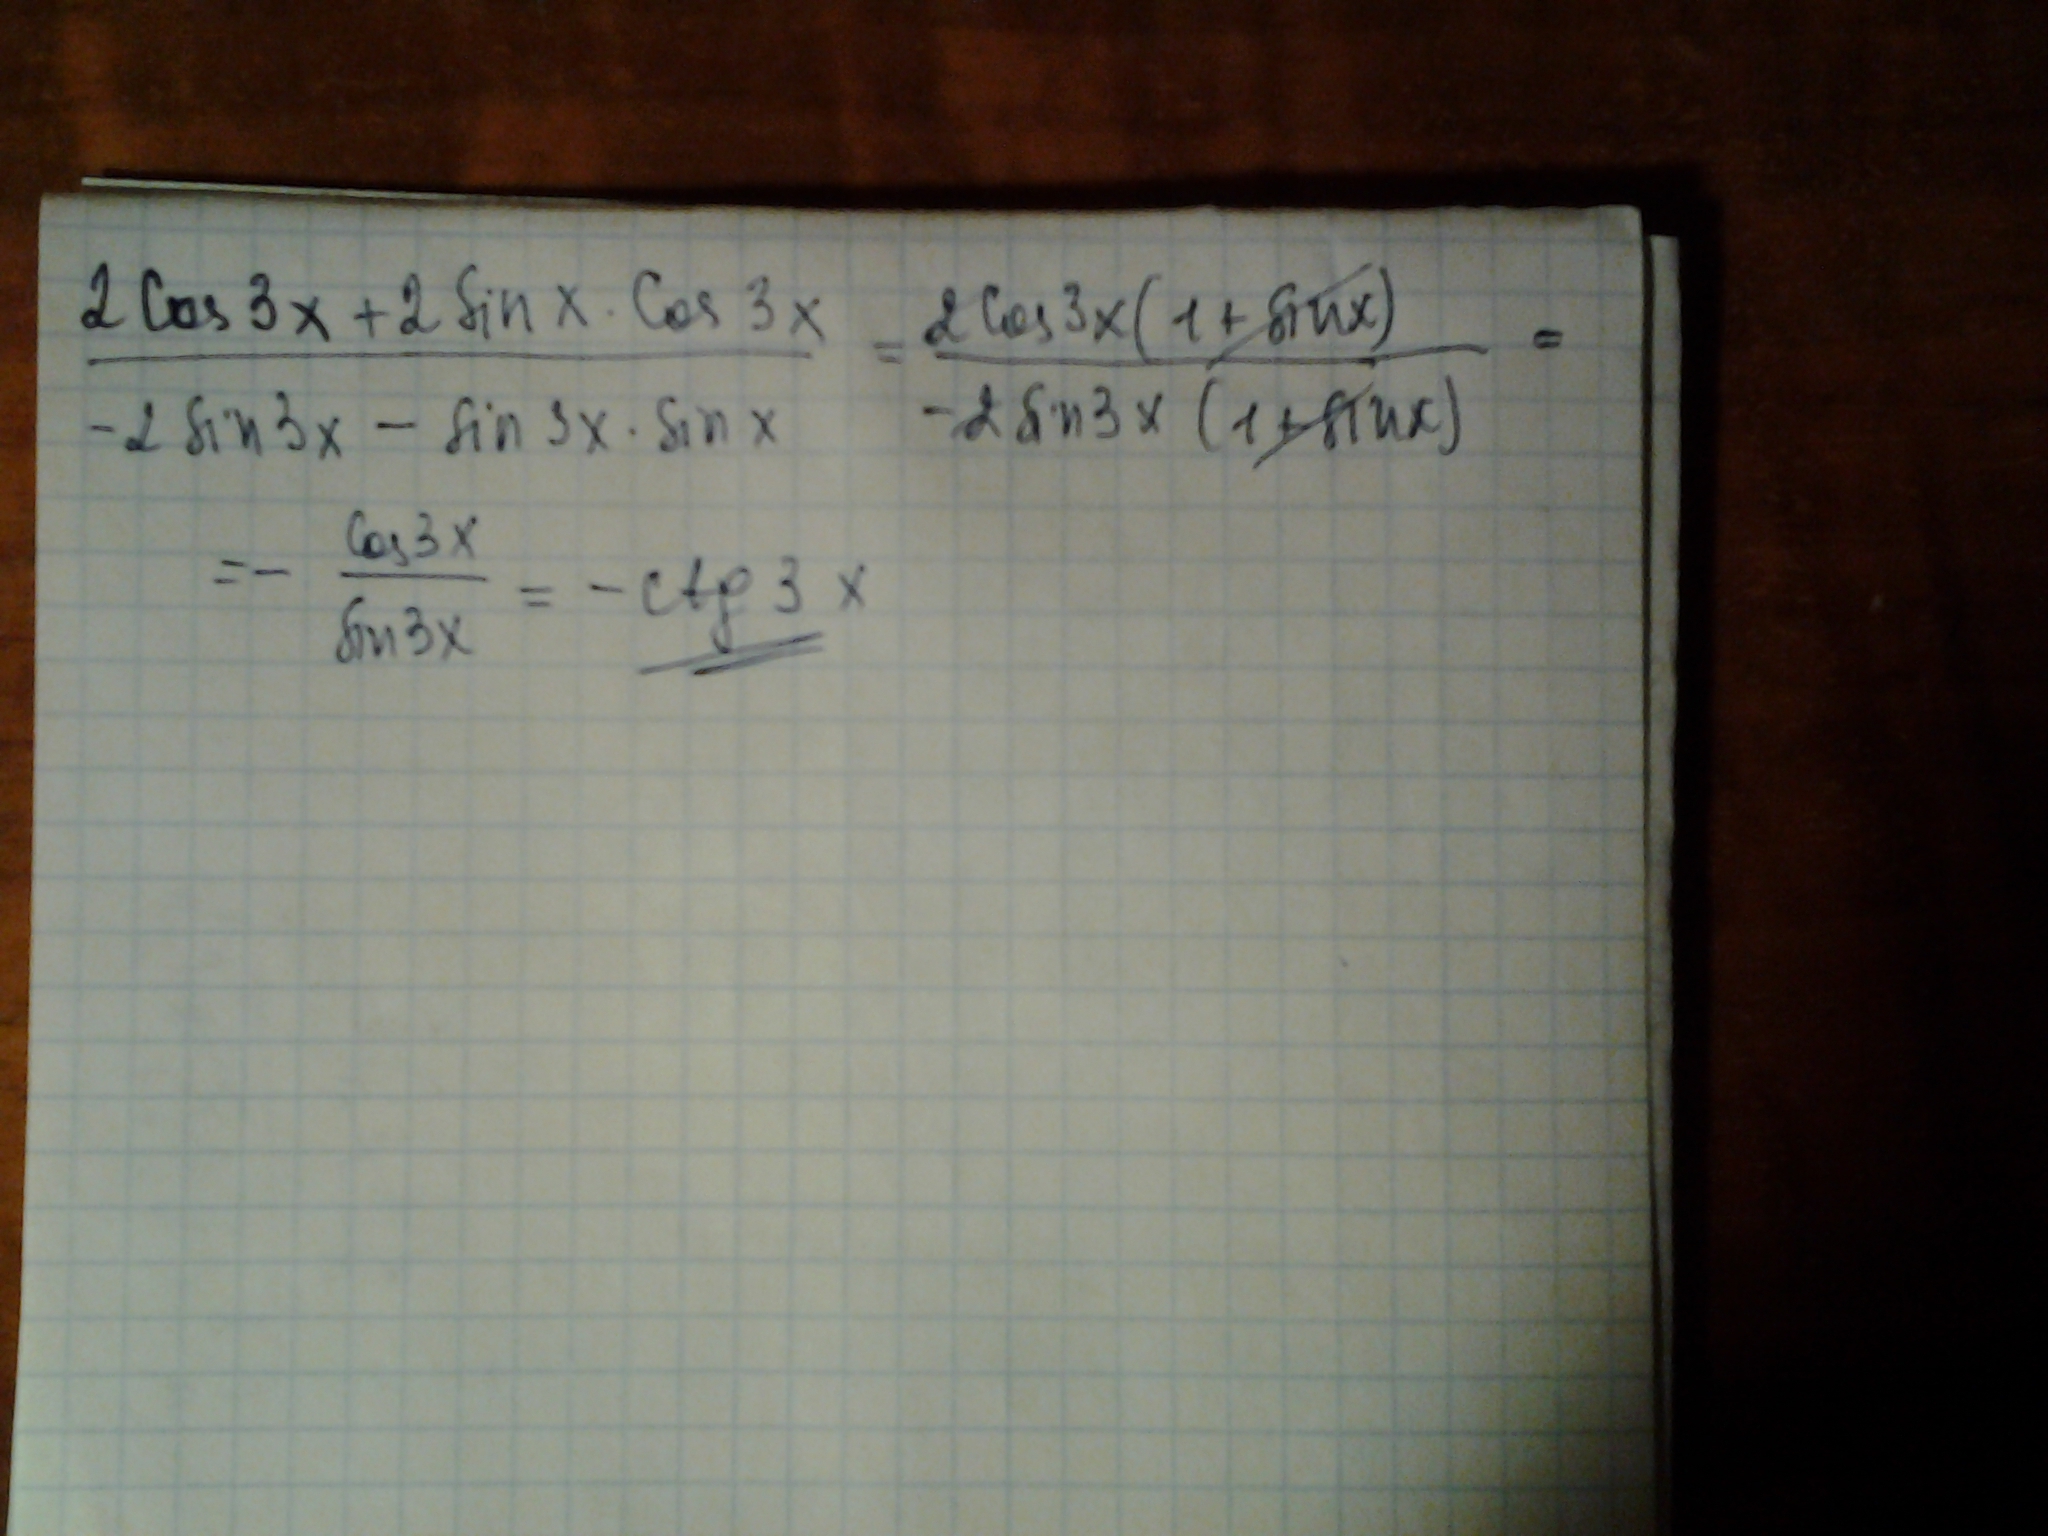 2Cos3x+2Sinx·Cos3x / -2Sin3x - Sin3x·Sinx = 2Cos3x(1+Sinx) / -2Sin3x(1+Sinx) =
= - Cos3x / Sin3x = -ctg3x